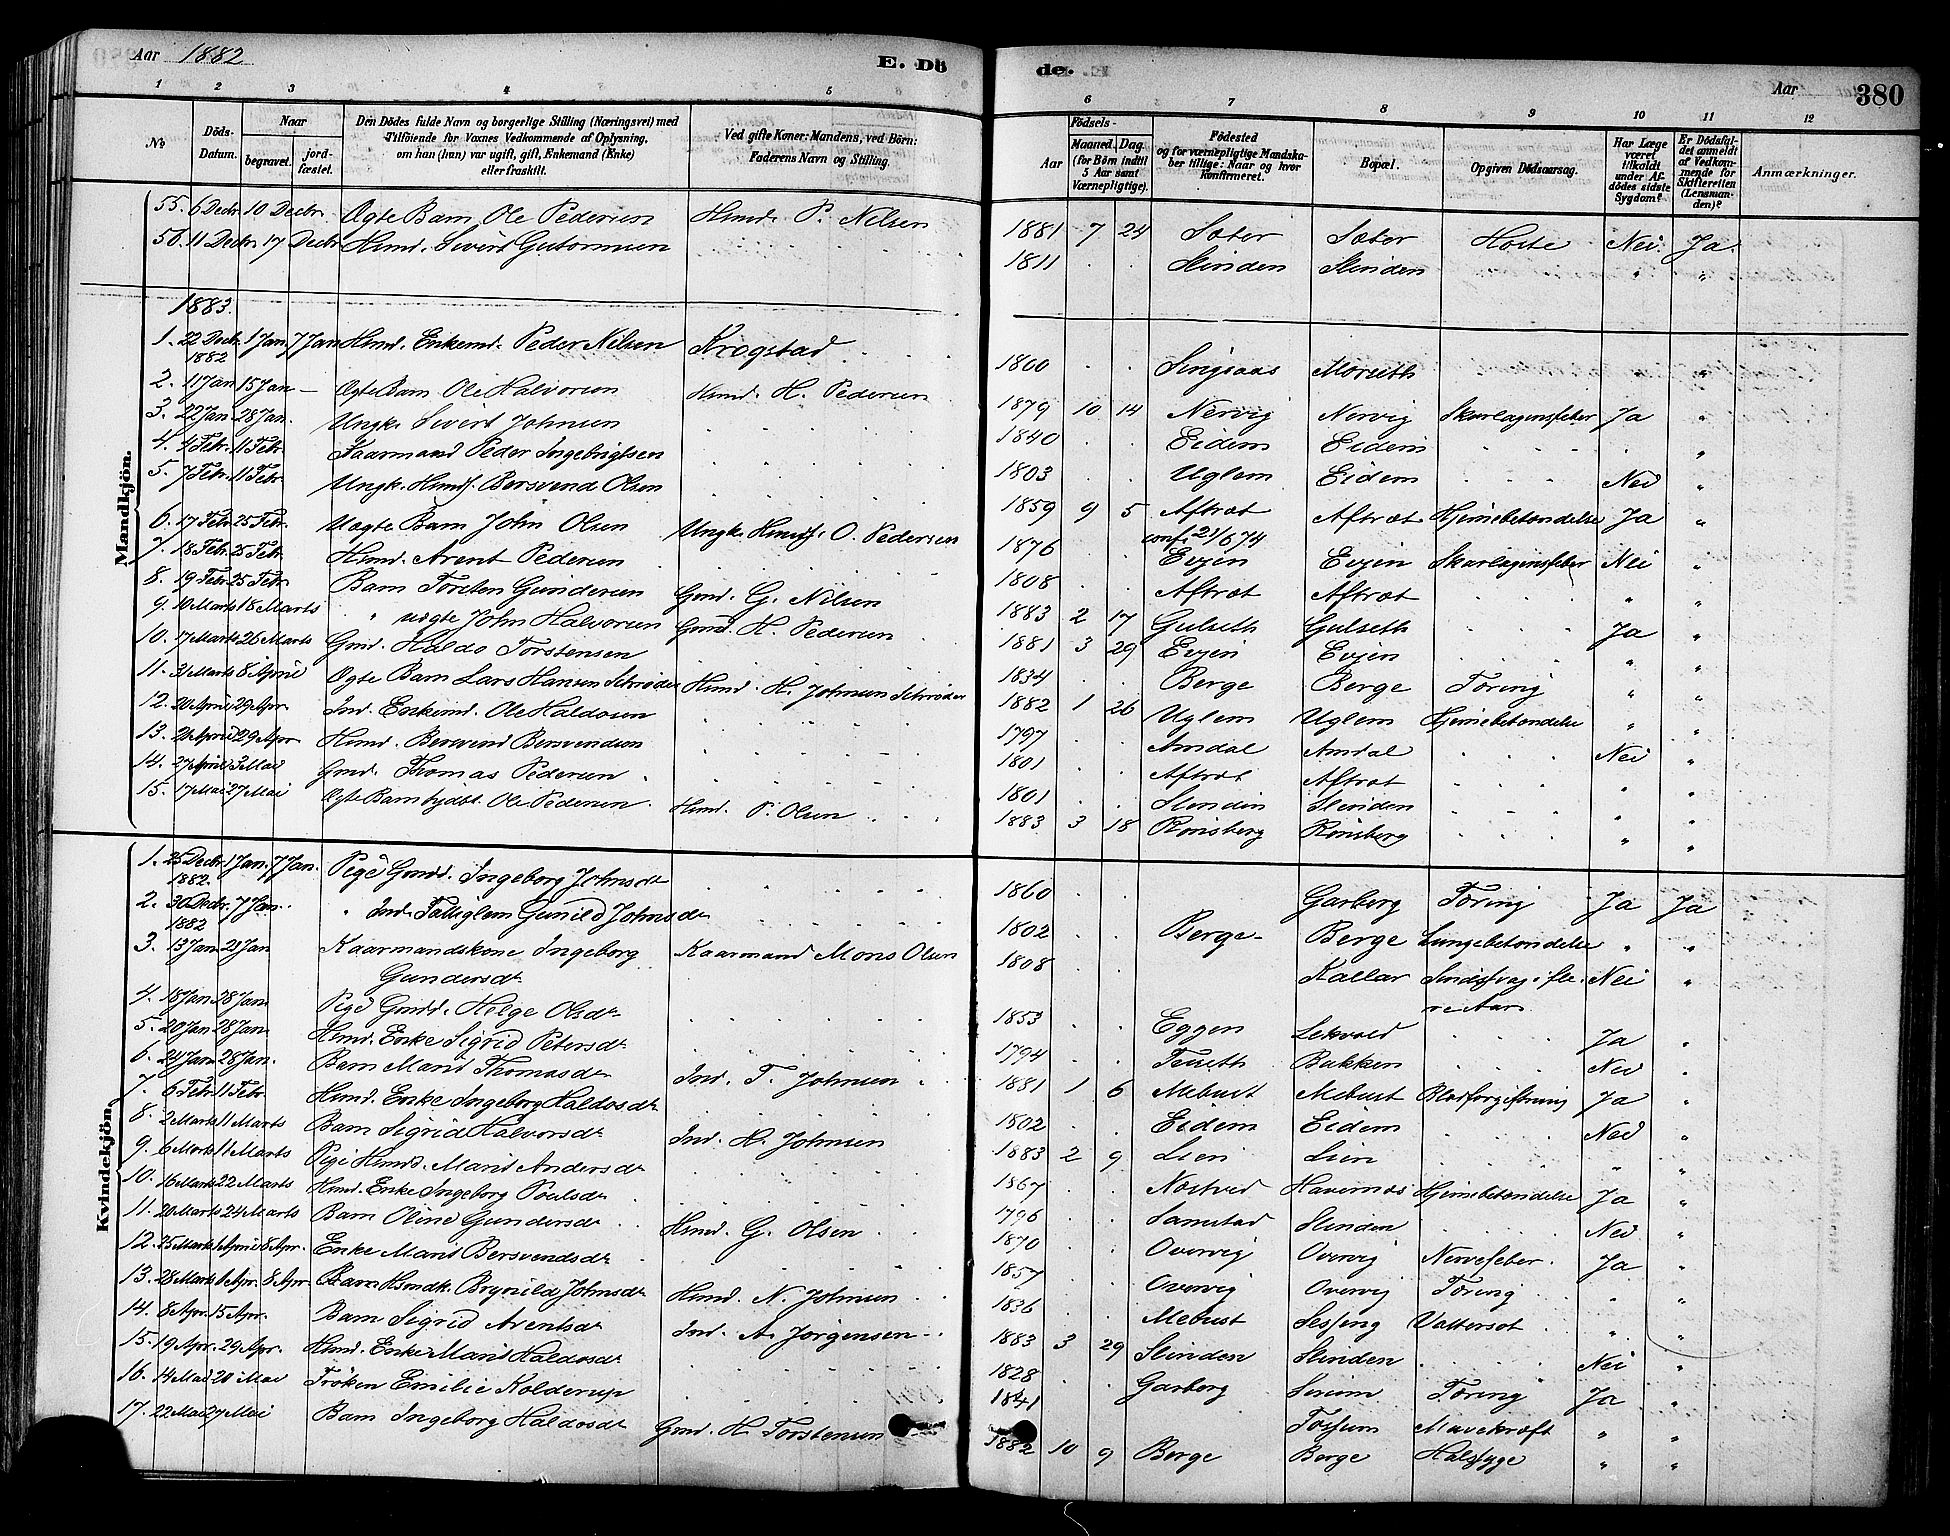 Aar 1882
E. Dö
de.
Aar
380
1 2 3 4 5 6 7 8 9 10 11 12
No
Döds-Datum.
Naar
begravet.
jord-fæstet.
Den Dödes fulde Navn og borgerlige Stilling (Næringsvei) med
Tilföiende for Voxnes Vedkommende af Oplysning,
om han (hun) var ugift, gift, Enkemand (Enke)
eller fraskilt.
Ved gifte Koner: Mandens, ved Börn:
Faderens Navn og Stilling.
Födsels-
Aar
Maaned. Dag.
(for Börn indtil
5 Aar samt
Værnepligtige).
Födested
og for værnepligtige Mandska-
ber tillige: Naar og hvor
konfirmeret.
Bopæl.
Opgiven Dödsaarsag.
Har Læge
været
tilkaldt
under Af-
dödes sidste
Sygdom?
Er Dödsfal-
det anmeldt
af Vedkom-
mende for
Skifteretten
(Lensman-
den)?
Anmærkninger.
Mandkjön.
55. 6 Decbr. 10 Decbr. Ægte Barn Ole Pedersen Hmd. P. Nilsen 1881 7 24 Sæter Sæter Hoste Nei Ja
56. 11 Decbr 17 Decbr Hmd. Sivert Guttormsen 1811 Slinden Slinden " "
1883.
1. 22 Decbr. 1882 1 Jan. 7 Jan Hmd. Enkemd. Peder Nilsen Krogstad 1800 Singsaas Morseth "
2. 11 Jan 15 Jan – Ægte Barn Ole Halvorsen Hmd. H. Pedersen 1879 10 14 Nervig Nervig Skarlagensfeber Ja "
3. 22 Jan. 28 Jan. Ungk. Sivert Johnsen 1840 Eidem Eidem "
4. 4 Febr. 11 Febr. Kaarmand Peder Ingebrigtsen 1803 Uglem Eidem Nei "
5. 7 Febr. 11 Febr. Ungk. Hmdf. Bersvend Olsen 1859 9 5 Aftræt conf. 21/6 74 Aftræt Hjernebetændelse Ja "
6. 17 Febr. 25 Febr. Uægte Barn John Olsen Ungk. Hmdf. O. Pedersen 1876 Evjen Evjen Skarlagensfeber Nei "
7. 18 Febr. 25 Febr. Hmd. Arent Pedersen 1808 Aftræt Aftræt " "
8. 19 Febr. 25 Febr. Barn Torsten Gundersen Gmd. G. Nilsen 1883 2 17 Gulseth Gulseth Ja "
9. 10 Marts 18 Marts " uægte John Halvorsen Gmd. H. Pedersen 1881 3 29 Evjen Evjen " "
10. 17 Marts 26 Marts Gmd. Haldo Torstensen 1834 Berge Berge Tæring " "
11. 31 Marts 8 April Ægte Barn Lars Hansen Schrøder Hmd H. Johnsen Schrøder 1882 1 26 Uglem Uglem Hjernebetændelse " "
12. 20 April 29 Apr. Ind. Enkemd. Ole Haldosen 1797 Amdal Amdal Nei "
13. 24 April 29 Apr Hmd. Bersvend Bersvendsen 1801 Aftræt Aftræt " "
14. 27 April 3 Mai Gmd. Thomas Pedersen 1801 Slinden Slinden " "
15. 17 Mai 27 Mai Ægte Barn Ole Pedersen Hmd. P. Olsen 1883 3 18 Rønsberg Rønsberg " "
Kvindekjön.
1. 25 Decbr. 1882. 1 Jan. 7 Jan. Pige Gmdd. Ingeborg Johnsdt 1860 Garberg Tæring Ja Ja
2. 30 Decbr. 1882 7 Jan. " Ind. Fattiglem Gunild Johnsdt 1802 Berge Berge Lungebetændelse " "
3. 13 Jan 21 Jan Kaarmandskone Ingeborg Gundersdt Kaarmand Mons Olsen 1808 Kallar Sindssvag i flere Aar Nei "
4. 18 Jan. 28 Jan Pige Gmdd. Helge Olsdt 1853 Eggen Lekvold Ja "
5. 20 Jan 28 Jan. Hmd. Enke Sigrid Petersdt 1794 Teiseth Bakken Nei "
6. 24 Jan 28 Jan. Barn Marit Thomasdt Ind. T. Johnsen 1881 1 6 Mebust Mebust Blodforgiftning Ja "
7. 6 Febr 11 Febr Hmd. Enke Ingeborg Haldosdt 1802 Eidem Eidem Nei "
8. 2 Marts 11 Marts Barn Sigrid Halvorsdt Ind. H. Johnsen 1883 2 9 Lien Lien " "
9. 6 Marts 11 Marts Pige Hmdd. Marit Andersdt 1867 Næstved Havernæs Hjernebetændelse Ja "
10. 16 Marts 22 Marts Hmd. Enke Ingeborg Poulsdt 1796 Samstad Slinden Nei "
11. 20 Marts 24 Marts Barn Oline Gundersdt Hmd. G. Olsen 1870 Overvig Overvig Nervefeber Ja "
12. 25 Marts 1 April 8 Apr. Enke Marit Bersvendsdt 1857 Overvig Overvig Tæring " "
13. 28 Marts 1 Apr. 8 Apr. Hmdk. Brynild Johnsdt Hmd. N. Johnsen 1836 Mebust Sessing Vattersot " "
14. 8 Apr. 15 Apr. Barn Sigrid Arentsdt Ind. A. Jørgensen 1883 3 29 Slinden Slinden Nei "
15. 19 Apr. 29 Apr. Hmd. Enke Marit Haldosdt 1828 Garberg Tæring Ja "
16. 14 Mai 20 Mai Frøken Emilie Kolderup 1841 Tossum Mavekræft " "
17. 22 Mai 27 Mai Barn Ingeborg Haldosdt Gmd. H. Torstensen 1882 10 9 Berge Berge Halssyge " "